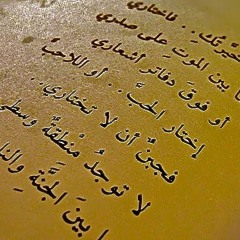 خيرتك .. فاختاري
ما بين الموت على صدري
أو فوق دفاتر أشعاري
إختاري الحب .. أو اللاحب
فجبن أن لا تختاري..
لا توجد منطقة وسطى
ما بين الجنة والنار